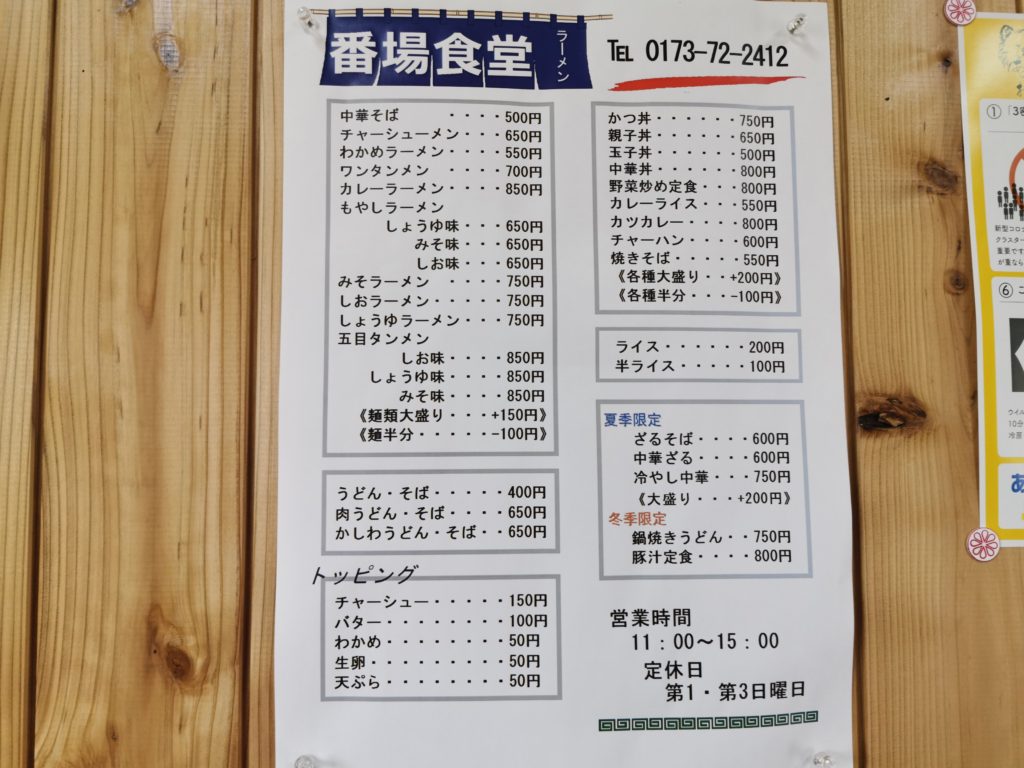 番場食堂
ラーメン
TEL 0173-72-2412
中華そば ・・・・500円
チャーシューメン・・・・650円
わかめラーメン・・・・550円
ワンタンメン ・・・・700円
カレーラーメン・・・・850円
もやしラーメン
しょうゆ味・・・650円
みそ味・・・・650円
しお味・・・・650円
みそラーメン ・・・・750円
しおラーメン・・・・・750円
しょうゆラーメン・・・・750円
五目タンメン
しお味・・・・850円
しょうゆ味・・・・850円
みそ味・・・・850円
《麺類大盛り・・・+150円》
《麺半分・・・・・-100円》
うどん・そば・・・・・400円
肉うどん・そば・・・・650円
かしわうどん・そば・・650円
トッピング
チャーシュー・・・・・150円
バター・・・・・・・・100円
わかめ・・・・・・・・50円
生卵・・・・・・・・・50円
天ぷら・・・・・・・・50円
かつ丼・・・・・・750円
親子丼・・・・・・650円
玉子丼・・・・・・500円
中華丼・・・・・・800円
野菜炒め定食・・・800円
カレーライス・・・550円
カツカレー・・・・800円
チャーハン・・・・600円
焼きそば・・・・・550円
《各種大盛り・・+200円》
《各種半分・・・-100円》
ライス・・・・・・200円
半ライス・・・・・100円
夏季限定
ざるそば・・・・600円
中華ざる・・・・600円
冷やし中華・・・750円
《大盛り・・・+200円》
冬季限定
鍋焼きうどん・・750円
豚汁定食・・・・800円
営業時間
11：00～15：00
定休日
第1・第3日曜日
① 「3密
新型コロナ
クラスター
重要です
が重なら
⑥ こ
ウイル
10分
冷房
あ